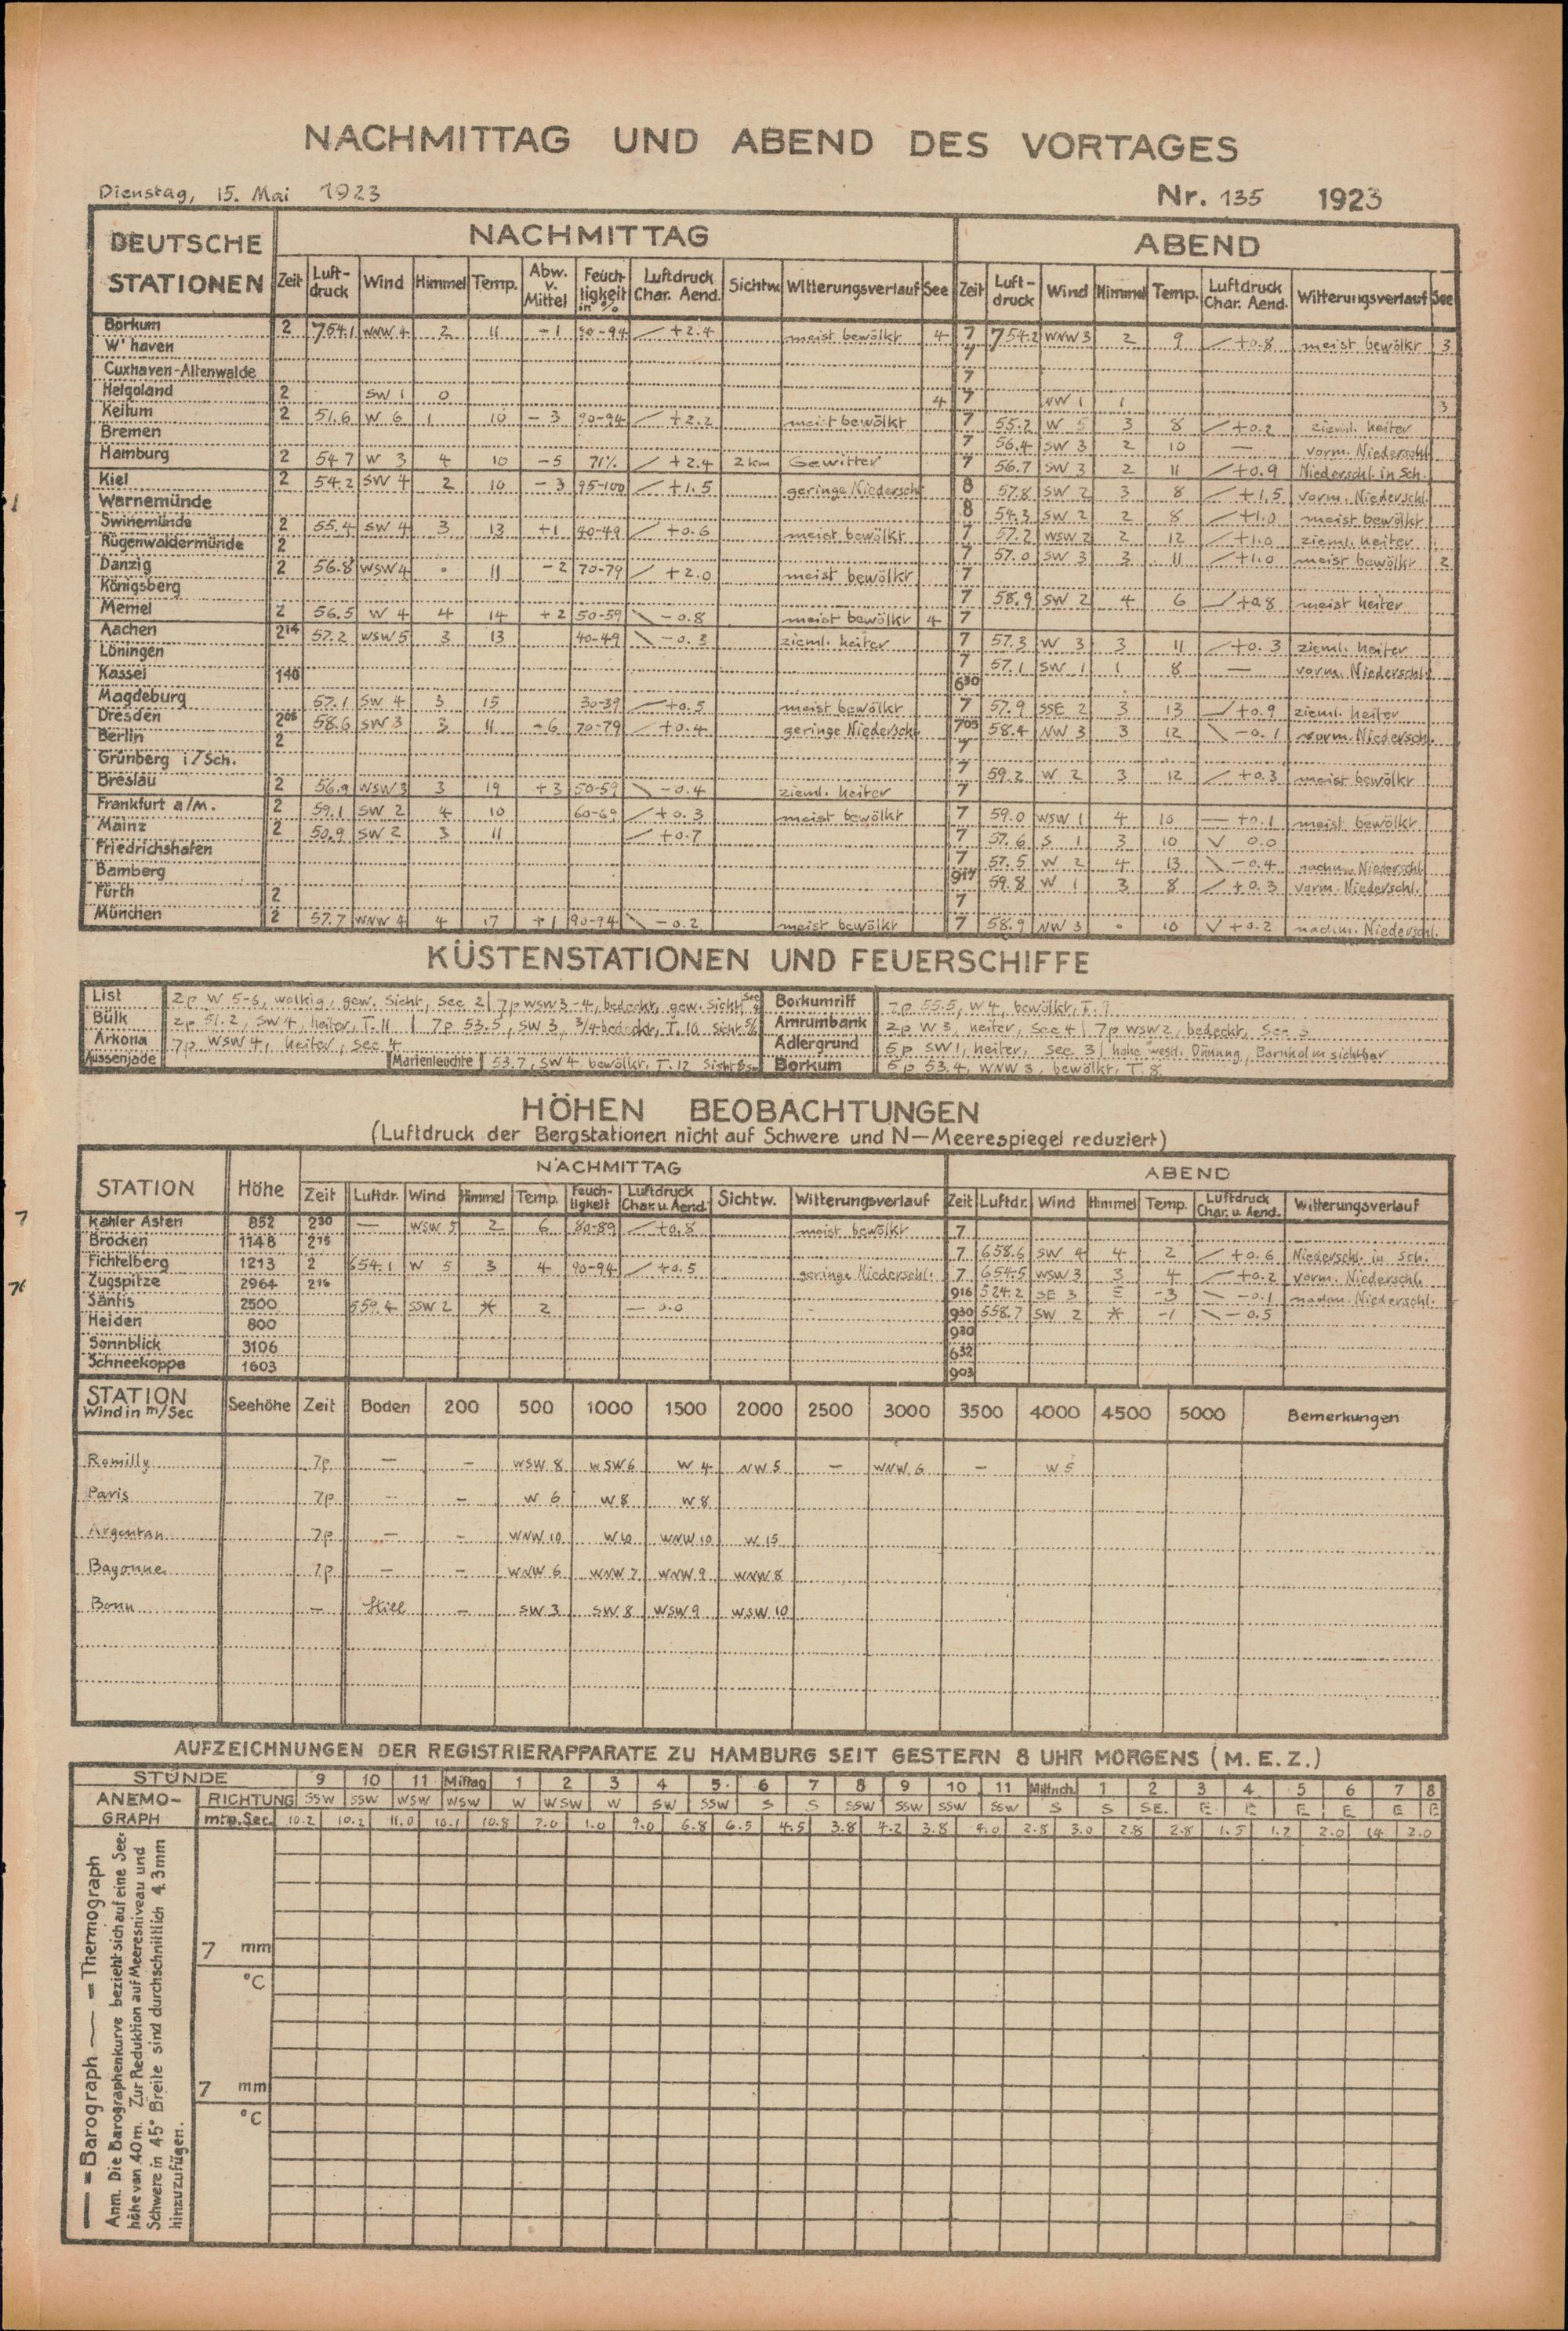 NACHMITTAG UND ABEND DES VORTAGES
Dienstag, 15. Mai 1923 Nr. 135 1923
DEUTSCHE STATIONEN NACHMITTAG ABEND
Zeit Luft-druck Wind Himmel Temp. Abw. v. Mittel Feuch-tigkeit in % Luftdruck Char. Aend. Sichtw. Witterungsverlauf See Zeit Luft-druck Wind Himmel Temp. Luftdruck Char. Aend. Witterungsverlauf See
Borkum 2 754.1 WNW 4 2 11 -1 90-94 +2.4 meist bewölkt 4 7 754.2 WNW 3 2 9 +0.8 meist bewölkt 3
W'haven 7
Cuxhaven-Altenwalde 7
Helgoland 2 SW 1 0 4 7 NW 1 1 3
Keitum 2 51.6 W 6 1 10 -3 90-94 +2.2 meist bewölkt 7 55.2 W 5 3 8 +0.2 zieml. heiter
Bremen 7 56.4 SW 3 2 10 — vorm. Niederschl.
Hamburg 2 54.7 W 3 4 10 -5 71% +2.4 2 km Gewitter 7 56.7 SW 3 2 11 +0.9 Niederschl. in Sch.
Kiel 2 54.2 SW 4 2 10 -3 95-100 +1.5 geringe Niedersch. 8 57.8 SW 2 3 8 +1.5 vorm. Niederschl.
Warnemünde 8 54.3 SW 2 2 8 +1.0 meist bewölkt
Swinemünde 2 55.4 SW 4 3 13 +1 40-49 +0.6 meist bewölkt 7 57.2 WSW 2 2 12 +1.0 zieml. heiter
Rügenwaldermünde 2 7 57.0 SW 3 3 11 +1.0 meist bewölkt 2
Danzig 2 56.8 WSW 4 11 -2 70-79 +2.0 meist bewölkt 7
Königsberg 7 58.9 SW 2 4 6 +0.8 meist heiter
Memel 2 56.5 W 4 4 14 +2 50-59 -0.8 meist bewölkt 4 7
Aachen 2¹⁴ 57.2 WSW 5 3 13 40-49 -0.3 zieml. heiter 7 57.3 W 3 3 11 +0.3 zieml. heiter
Löningen 7 57.1 SW 1 1 8 — vorm. Niederschl.
Kassel 1⁴⁰ 6³⁰
Magdeburg 57.1 SW 4 3 15 30-39 +0.5 meist bewölkt 7 57.9 SSE 2 3 13 +0.9 zieml. heiter
Dresden 2⁰⁵ 58.6 SW 3 3 11 -6 70-79 +0.4 geringe Niedersch. 7⁰⁵ 58.4 NW 3 3 12 -0.1 vorm. Niedersch.
Berlin 2 7
Grünberg i/Sch. 7 59.2 W 2 3 12 +0.3 meist bewölkt
Breslau 2 56.9 WSW 3 3 19 +3 50-59 -0.4 zieml. heiter 7
Frankfurt a/M. 2 59.1 SW 2 4 10 60-69 +0.3 meist bewölkt 7 59.0 WSW 1 4 10 +0.1 meist bewölkt
Mainz 2 50.9 SW 2 3 11 +0.7 7 57.6 S 1 3 10 0.0
Friedrichshafen 7 57.5 W 2 4 13 -0.4 nachm. Niederschl.
Bamberg 9¹⁷ 59.8 W 1 3 8 +0.3 vorm. Niederschl.
Fürth 2 7
München 2 57.7 WNW 4 4 17 +1 90-94 -0.2 meist bewölkt 7 58.9 NW 3 10 +0.2 nachm. Niederschl.
KÜSTENSTATIONEN UND FEUERSCHIFFE
List 2p W 5-6, wolkig, gew. Sicht, See 2 | 7p WSW 3-4, bedeckt, gew. Sicht, See Borkumriff 7p 55.5, W 4, bewölkt, T. 9
Bülk 2p 51.2, SW 4, heiter, T. 11 | 7p 53.5, SW 3, 3/4 bedeckt, T. 10 Sicht 5/6 Amrumbank 2p W 3, heiter, See 4 | 7p WSW 2, bedeckt, See 3
Arkona 7p WSW 4, heiter, See 4 Adlergrund 5p SW 1, heiter, See 3 | hohe westl. Dünung, Bornholm sichtbar
Aussenjade Marienleuchte 53.7, SW 4 bewölkt, T. 12 Sicht Borkum 5p 53.4, WNW 3, bewölkt, T. 8
HÖHEN BEOBACHTUNGEN
(Luftdruck der Bergstationen nicht auf Schwere und N—Meerespiegel reduziert)
STATION Höhe NACHMITTAG ABEND
Zeit Luftdr. Wind Himmel Temp. Feuch-tigkeit Luftdruck Char. u. Aend. Sichtw. Witterungsverlauf Zeit Luftdr. Wind Himmel Temp. Luftdruck Char. u. Aend. Witterungsverlauf
Kahler Asten 852 2³⁰ — WSW 5 2 6 80-89 +0.8 meist bewölkt 7
Brocken 1148 2¹⁵ 7 658.6 SW 4 4 2 +0.6 Niederschl. in Sch.
Fichtelberg 1213 2 654.1 W 5 3 4 90-94 +0.5 geringe Niederschl. 7 654.5 WSW 3 3 4 +0.2 vorm. Niederschl.
Zugspitze 2964 2¹⁶ 9¹⁶ 524.2 SE 3 ≡ -3 -0.1 nachm. Niederschl.
Säntis 2500 559.4 SSW 2 * 2 — 0.0 9³⁰ 558.7 SW 2 * -1 -0.5
Heiden 800 9³⁰
Sonnblick 3106 6³²
Schneekoppe 1603 9⁰³
STATION Wind in m/Sec Seehöhe Zeit Boden 200 500 1000 1500 2000 2500 3000 3500 4000 4500 5000 Bemerkungen
Romilly 7p — — WSW 8 WSW 6 W 4 NW 5 — WNW 6 — W 5
Paris 7p — — W 6 W 8 W 8
Argentan 7p — — WNW 10 W 10 WNW 10 W 15
Bayonne 7p — — WNW 6 WNW 7 WNW 9 WNW 8
Bonn — Still — SW 3 SW 8 WSW 9 WSW 10
AUFZEICHNUNGEN DER REGISTRIERAPPARATE ZU HAMBURG SEIT GESTERN 8 UHR MORGENS (M.E.Z.)
STUNDE 9 10 11 Mittag 1 2 3 4 5 6 7 8 9 10 11 Mittnch. 1 2 3 4 5 6 7 8
ANEMO- RICHTUNG SSW SSW WSW WSW W WSW W SW SSW S S SSW SSW SSW SSW S S SE. E E E E E E
GRAPH m.p.Sec. 10.2 10.2 11.0 10.1 10.8 7.0 1.0 9.0 6.8 6.5 4.5 3.8 4.2 3.8 4.0 2.8 3.0 2.8 2.8 1.5 1.2 2.0 1.4 2.0
— = Barograph — = Thermograph
Anm. Die Barographenkurve bezieht sich auf eine See-
höhe von 40 m. Zur Reduktion auf Meeresniveau und
Schwere in 45° Breite sind durchschnittlich 4.3 mm
hinzuzufügen.
7 mm
°C
7 mm
°C